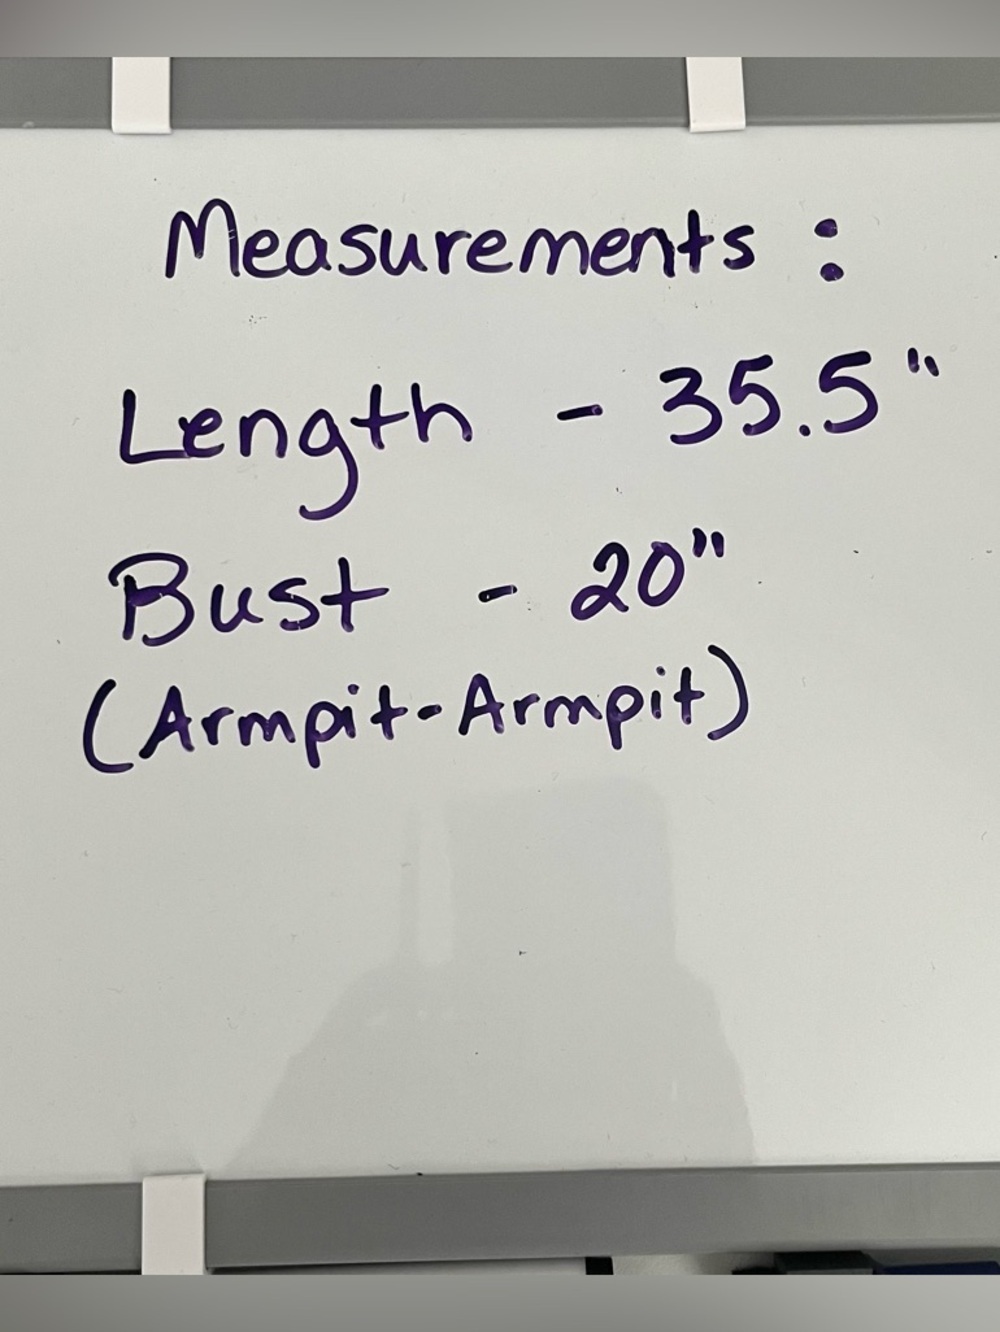 Measurements :
Length - 35.5"
Bust - 20"
(Armpit-Armpit)